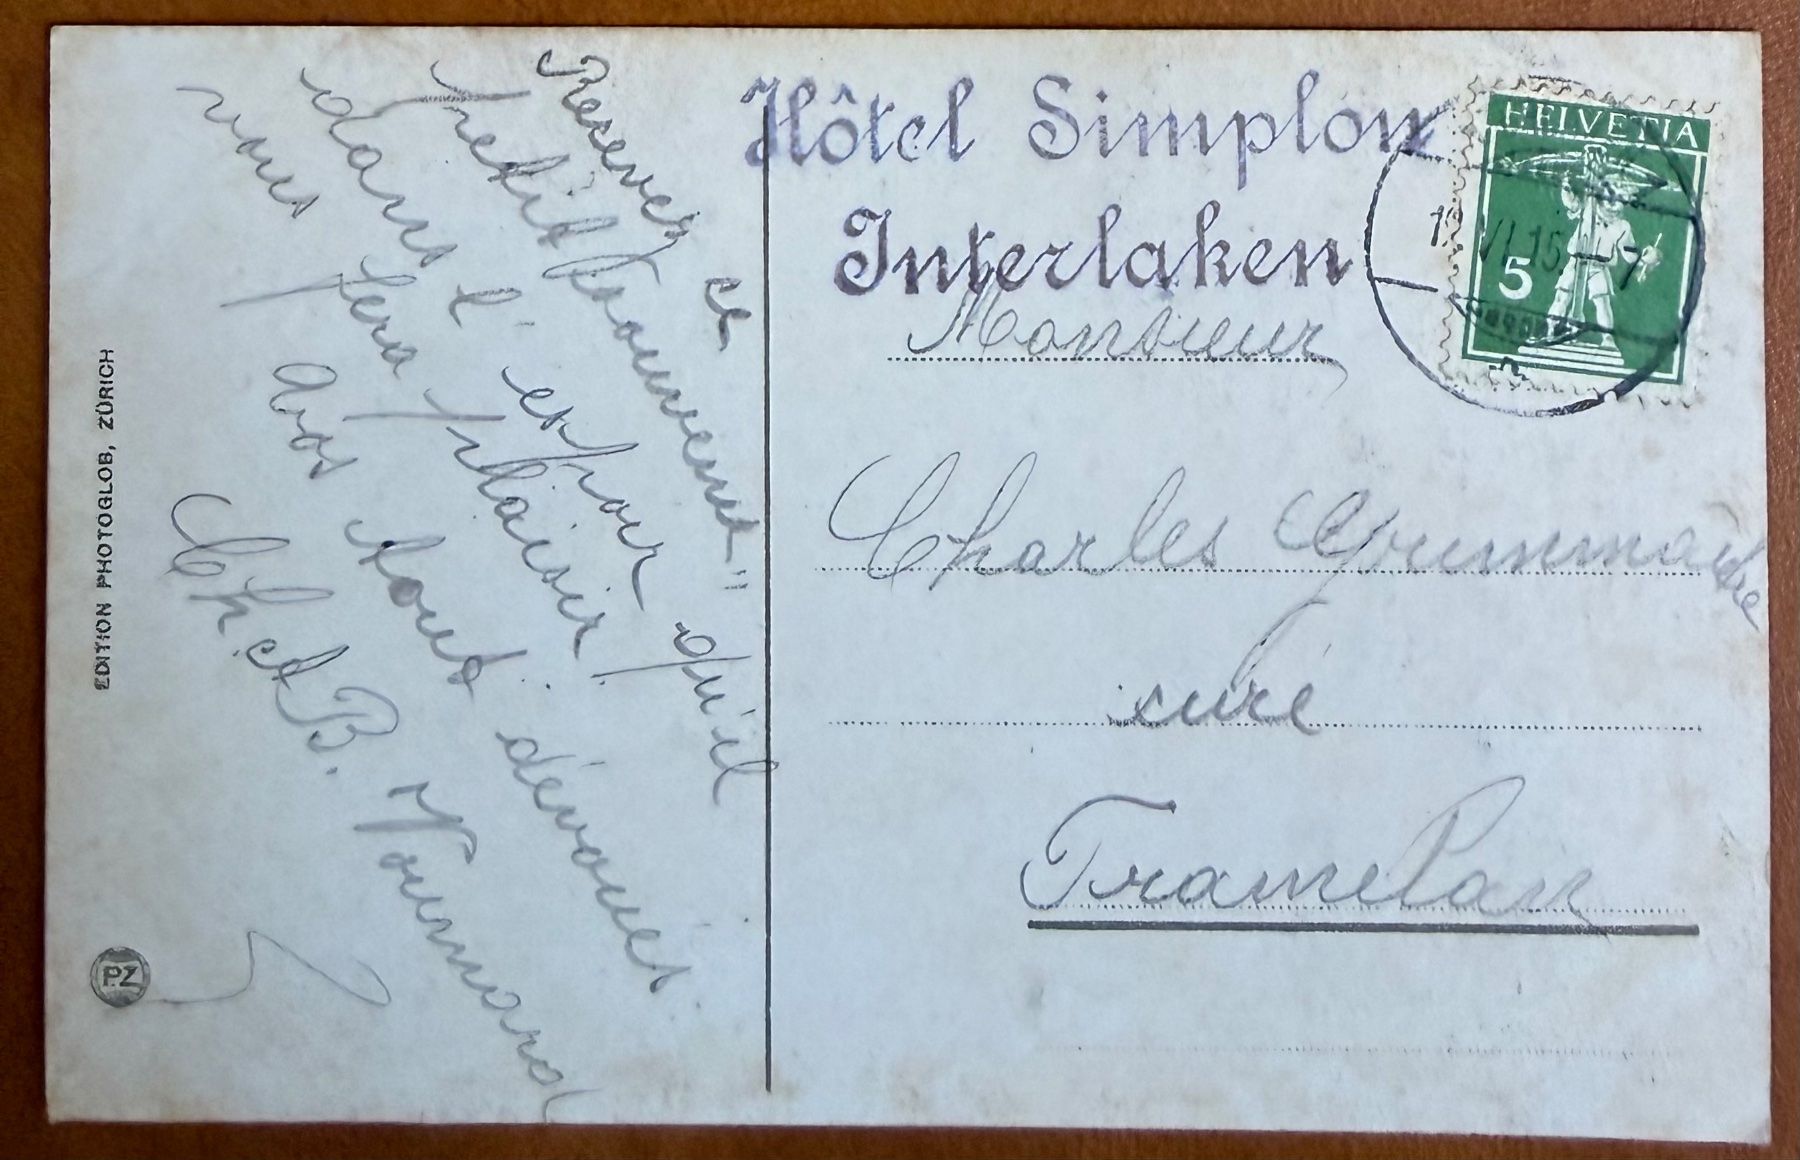 Recevez ce
petit souvenir"
dans l'espoir qu'il
vous fera plaisir!
A vos tout dévoués.
Ch. et B. Nourmand
Hôtel Simplon
Interlaken
HELVETIA
5
VI.15-7
Monsieur
Charles
curé
Tramelan
EDITION PHOTOGLOB, ZÜRICH
PZ